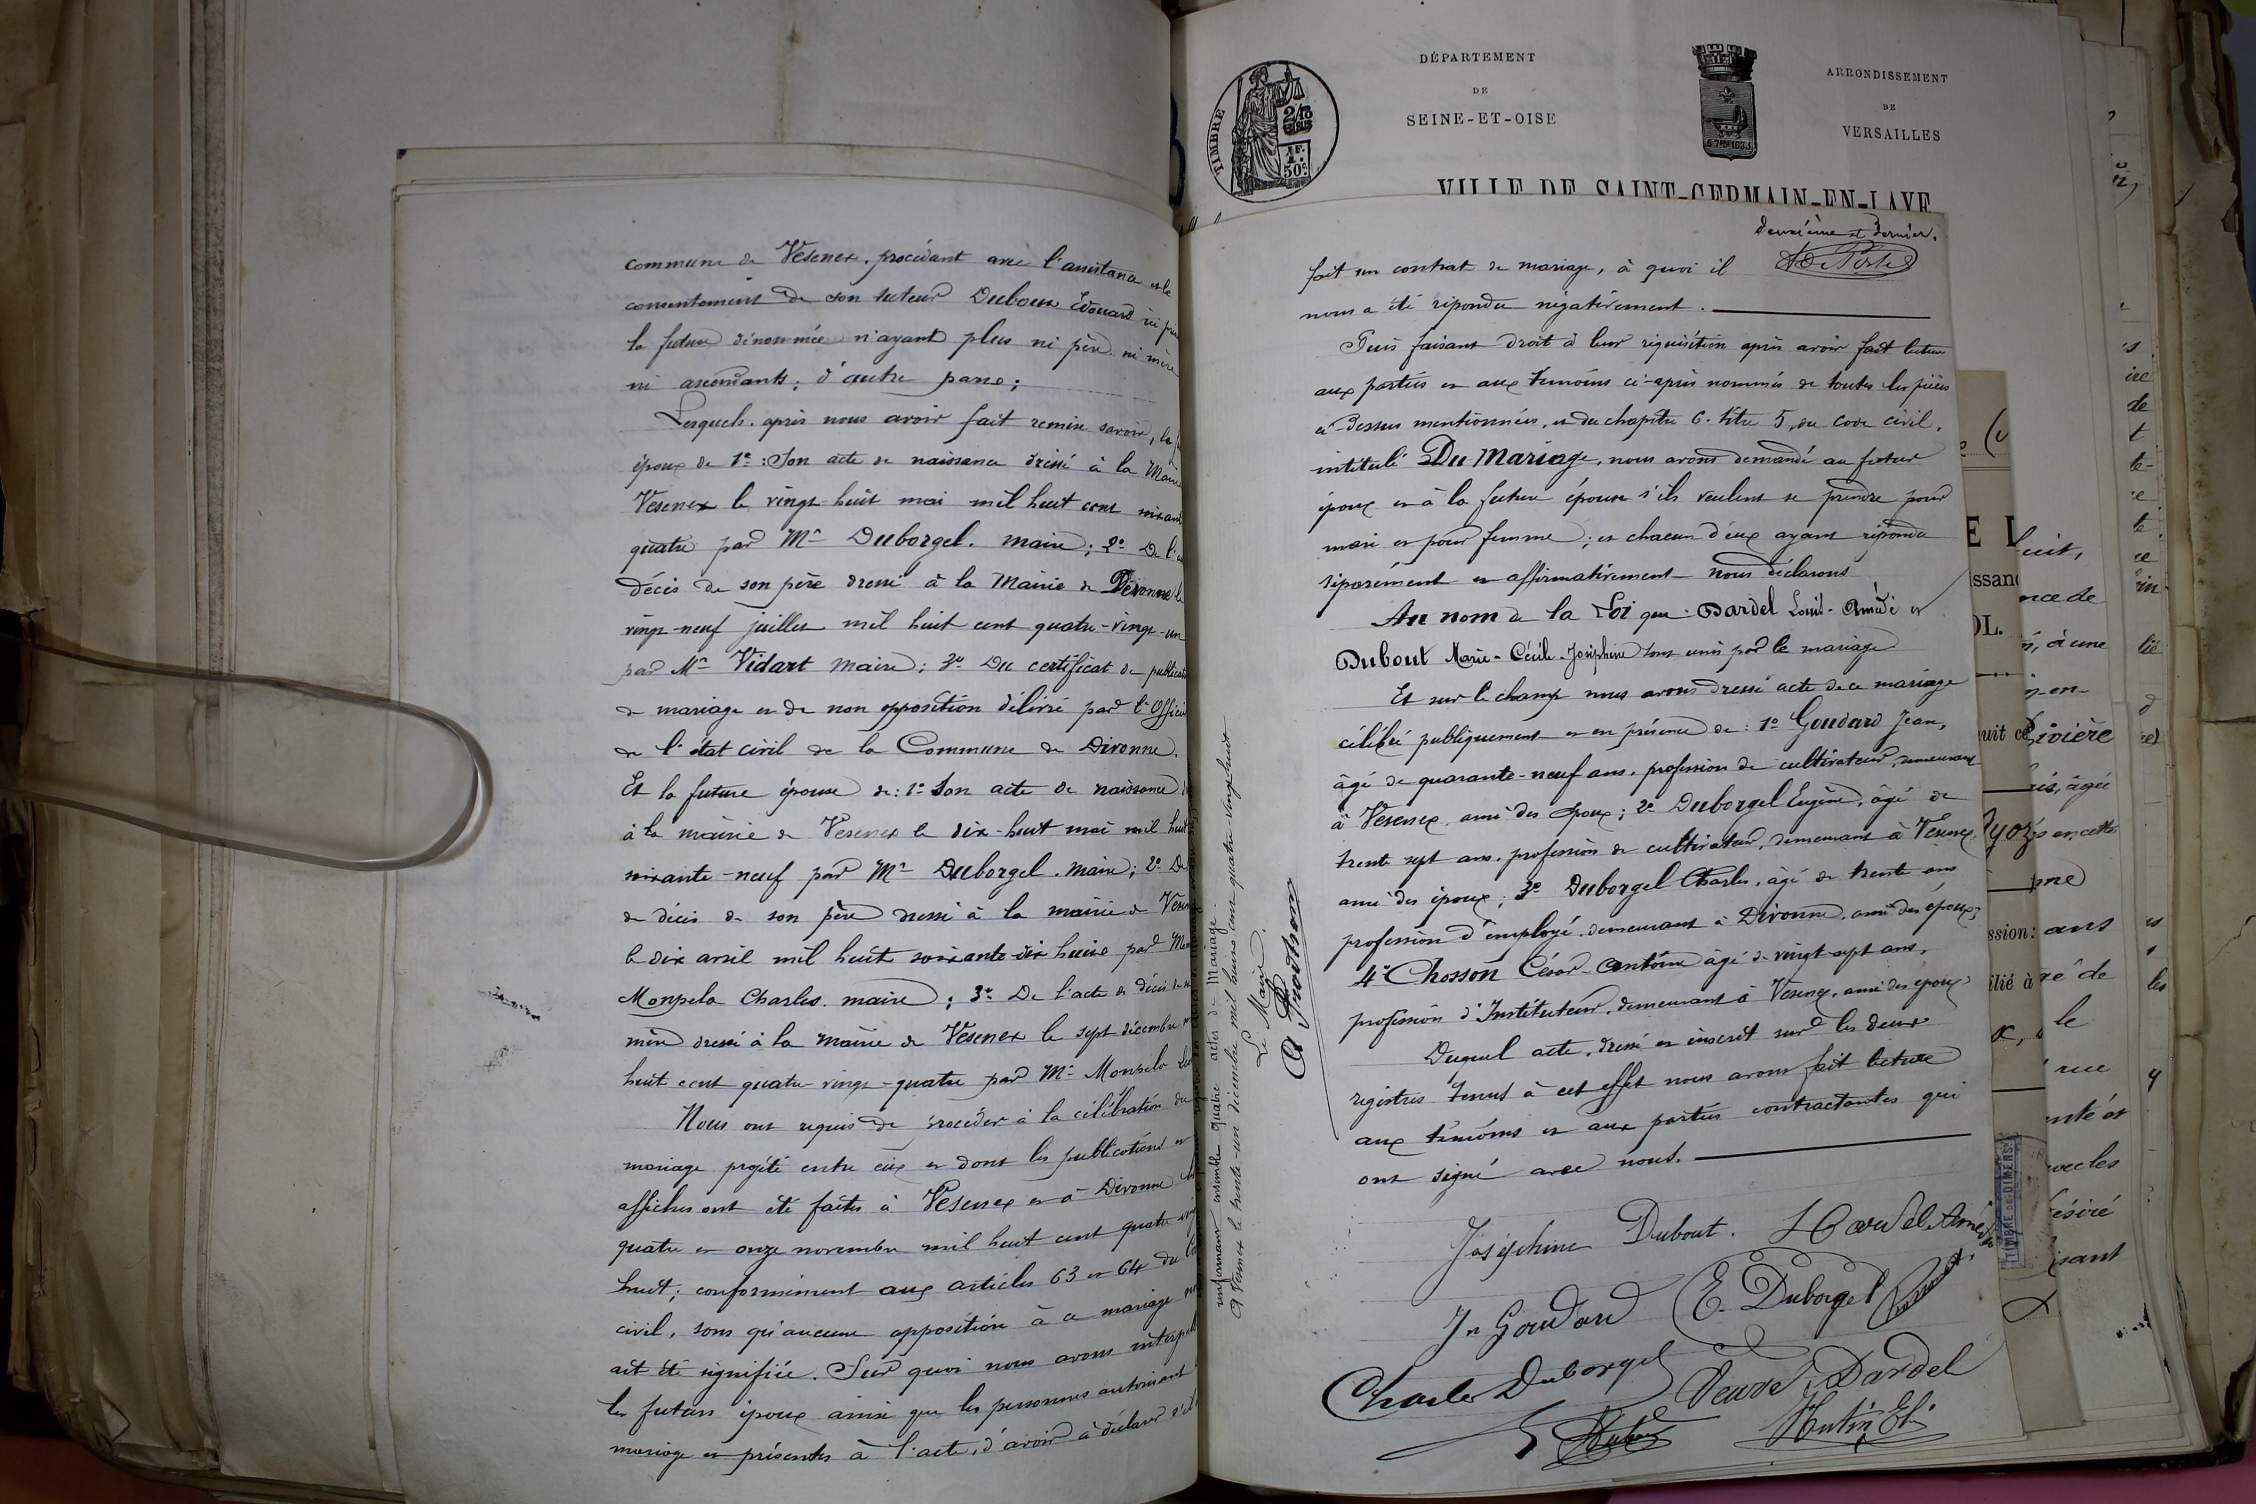 commune de Vesenex, procédant avec l'assistance et le
consentement de son tuteur Dubout Edouard ici
la future dénommée n'ayant plus ni père ni mère
ni ascendants; d'autre part;
Lesquels, après nous avoir fait remise savoir, le
époux de 1º: Son acte de naissance dressé à la Mairie
Vesenex le vingt-huit mai mil huit cent soixante
quatre par Mr Duborgel. maire; 2º De l'
décès de son père dressé à la Mairie de Divonne le
vingt-neuf juillet mil huit cent quatre-vingt-un
par Mr Vidart Maire; 3º Du certificat de
de mariage et de non opposition délivré par l'Officier
de l'état civil de la Commune de Divonne.
Et la future épouse de: 1º Son acte de naissance
à la mairie de Vesenex le dix-huit mai mil huit
soixante-neuf par Mr Duborgel. maire; 2º De
de décès de son père dressé à la mairie de
le dix avril mil huit soixante-dix huit par
Monpela Charles. maire; 3º De l'acte de décès de
mère dressé à la mairie de Vesenex le sept décembre
huit cent quatre-vingt-quatre par Mr Monpela
Nous ont requis de procéder à la célébration du
mariage projeté entre eux et dont les publications et
affiches ont été faites à Vesenex et à Divonne
quatre et onze novembre mil huit cent quatre
huit; conformément aux articles 63 et 64 du
civil, sans qu'aucune opposition à ce mariage
ait été signifiée. Sur quoi nous avons
les futurs époux ainsi que les personnes autorisant
mariage et présentes à l'acte, d'avoir à déclarer
renfermant ensemble quatre actes de Mariage.
A Vesenex le trente-un décembre mil huit cent quatre-vingt-huit
Le Maire.
TIMBRE
DÉPARTEMENT
DE
SEINE-ET-OISE
ARRONDISSEMENT
DE
VERSAILLES
VILLE DE SAINT-GERMAIN-EN-LAYE
deuxième et dernier.
fait un contrat de mariage, à quoi il
nous a été répondu négativement.
Puis faisant droit à leur réquisition après avoir fait lecture
aux parties et aux témoins ci-après nommés de toutes les pièces
ci-dessus mentionnées, et du chapitre 6. titre 5, du code civil,
intitulé Du Mariage, nous avons demandé au futur
époux et à la future épouse s'ils veulent se prendre pour
mari et pour femme; et chacun d'eux ayant répondu
séparément et affirmativement nous déclarons
Au nom de la Loi que Dardel Louis-Amédé et
Dubout Marie-Cécile-Joséphine sont unis par le mariage
Et sur le champ nous avons dressé acte de ce mariage
célébré publiquement et en présence de: 1º Goudard Jean,
âgé de quarante-neuf ans, profession de cultivateur, demeurant
à Vesenex, ami des époux; 2º Duborgel Eugène, âgé de
trente sept ans, profession de cultivateur, demeurant à Vesenex
ami des époux; 3º Duborgel Charles, âgé de trente ans
profession d'employé, demeurant à Divonne, ami des époux;
4º Chosson César-Antoine âgé de vingt-sept ans,
profession d'Instituteur, demeurant à Vesenex, ami des époux
Duquel acte, dressé et inscrit sur les deux
registres tenus à cet effet nous avons fait lecture
aux témoins et aux parties contractantes qui
ont signé avec nous.
Joséphine Dubout. L Dardel Amédé
Jn Goudard E. Duborgel
Charles Duborgel Veuve Dardel
Hutin
TIMBRE DE DIMENS.